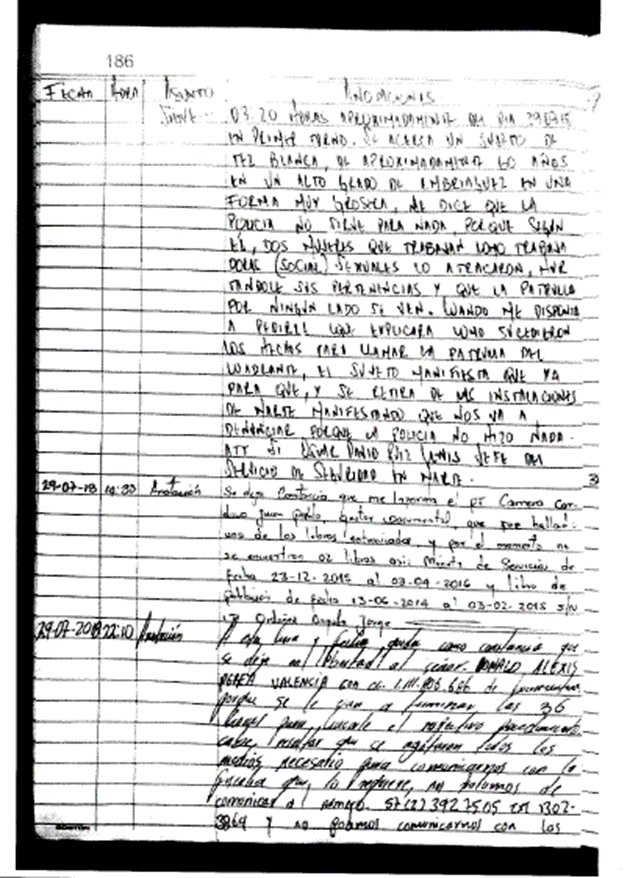 186
FECHA HORA ASUNTO ANOTACIONES
SIGUE.. 03:20 HORAS APROXIMADAMENTE DEL DIA 290715
EN PRIMER TURNO. SE ACERCA UN SUJETO DE
TEZ BLANCA, DE APROXIMADAMENTE 60 AÑOS
EN UN ALTO GRADO DE EMBRIAGUEZ EN UNA
FORMA MUY GROSERA, ME DICE QUE LA
POLICIA NO SIRVE PARA NADA, PORQUE SEGUN
EL, DOS MUJERES QUE TRABAJAN COMO TRABAJA
DORAS (SOCIAL) SEXUALES LO ATRACARON, HUR
TANDOLE SUS PERTENENCIAS Y QUE LA PATRULLA
POR NINGUN LADO SE VEN. CUANDO ME DISPONIA
A PEDIRLE QUE EXPLICARA COMO SUCEDIERON
LOS HECHOS PARA LLAMAR LA PATRULLA DEL
CUADRANTE, EL SUJETO MANIFIESTA QUE YA
PARA QUE, Y SE RETIRA DE LAS INSTALACIONES
DE MARTE MANIFESTANDO QUE NOS VA A
DENUNCIAR PORQUE LA POLICIA NO HIZO NADA.
ATT SI DAVID RUIZ JEFE DEL
SERVICIO DE SEGURIDAD EN MARTE.
29-07-18 Anotación Se deja Constancia que me el PT Carrera Car
Juan Pablo, Gestor documental, que por
uno de los libros y por el momento no
se encuentran 02 libros asi: Minuta de Servicios de
fecha 23-12-2015 al 03-09-2016 y libro de
población de fecha 13-06-2014 al 03-02-2015 s/n
Ordoñez Angulo Jorge
29-07-2018 22:10 Anotación A esta hora y fecha queda como constancia que
se deja en libertad al señor. RONALD ALEXIS
PEREA VALENCIA con cc. de
porque se le van a terminar las 36
horas para el respectivo procedimiento
cabe que se agotaron todos los
medios necesario para comunicarnos con la
fiscalia que lo requiere, no de
comunicar al numero. 57(2) 392 7505 ext 1302-
3869 y no podemos comunicarnos con los